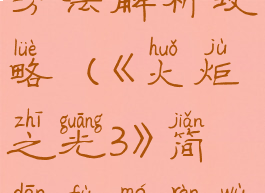 方法解析攻
lüè huǒ jù
略（《火炬
zhī guāng jiǎn
之光3》简
dān fù mó rèn wù